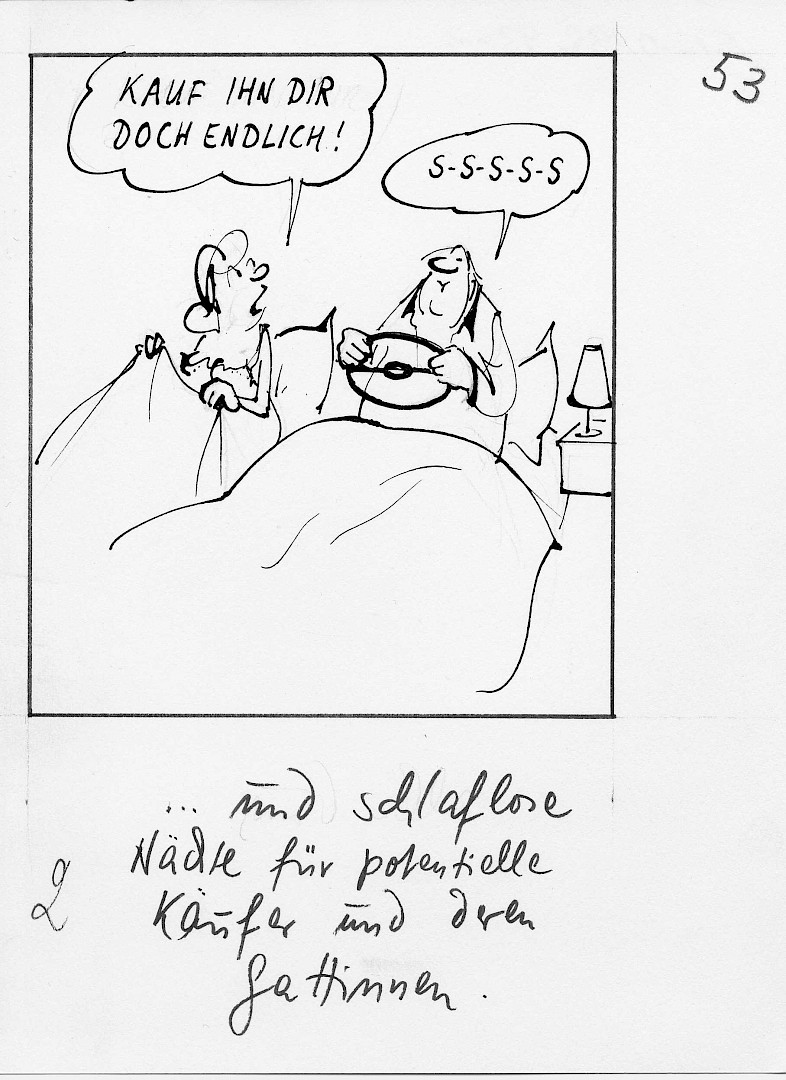 53
KAUF IHN DIR
DOCH ENDLICH!
S-S-S-S-S
... und schlaflose
Nächte für potentielle
Käufer und deren
Gattinnen.
2